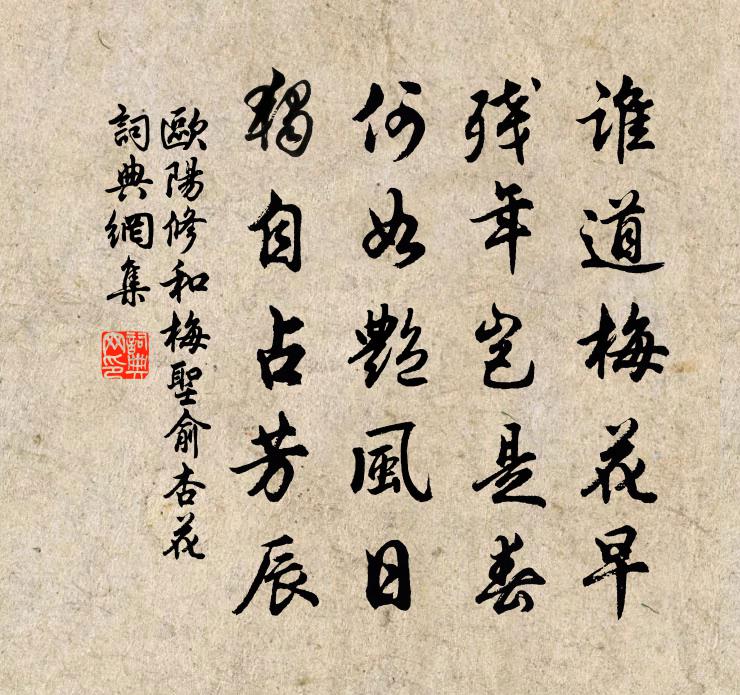 誰道梅花早
殘年豈是春
何如艷風日
獨自占芳辰
歐陽修和梅聖俞杏花
詞典網集
詞典網印